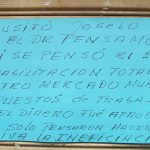 USITÓ
EL DR PENSAMO
SE PENSÓ EL
ABILITACION TOTA
TRO MERCADO MUN
PUESTOS DE TRABA
EL DINERO FUE APRO
SOLO PENSARON HACER
VIVA LA INEFICIAC